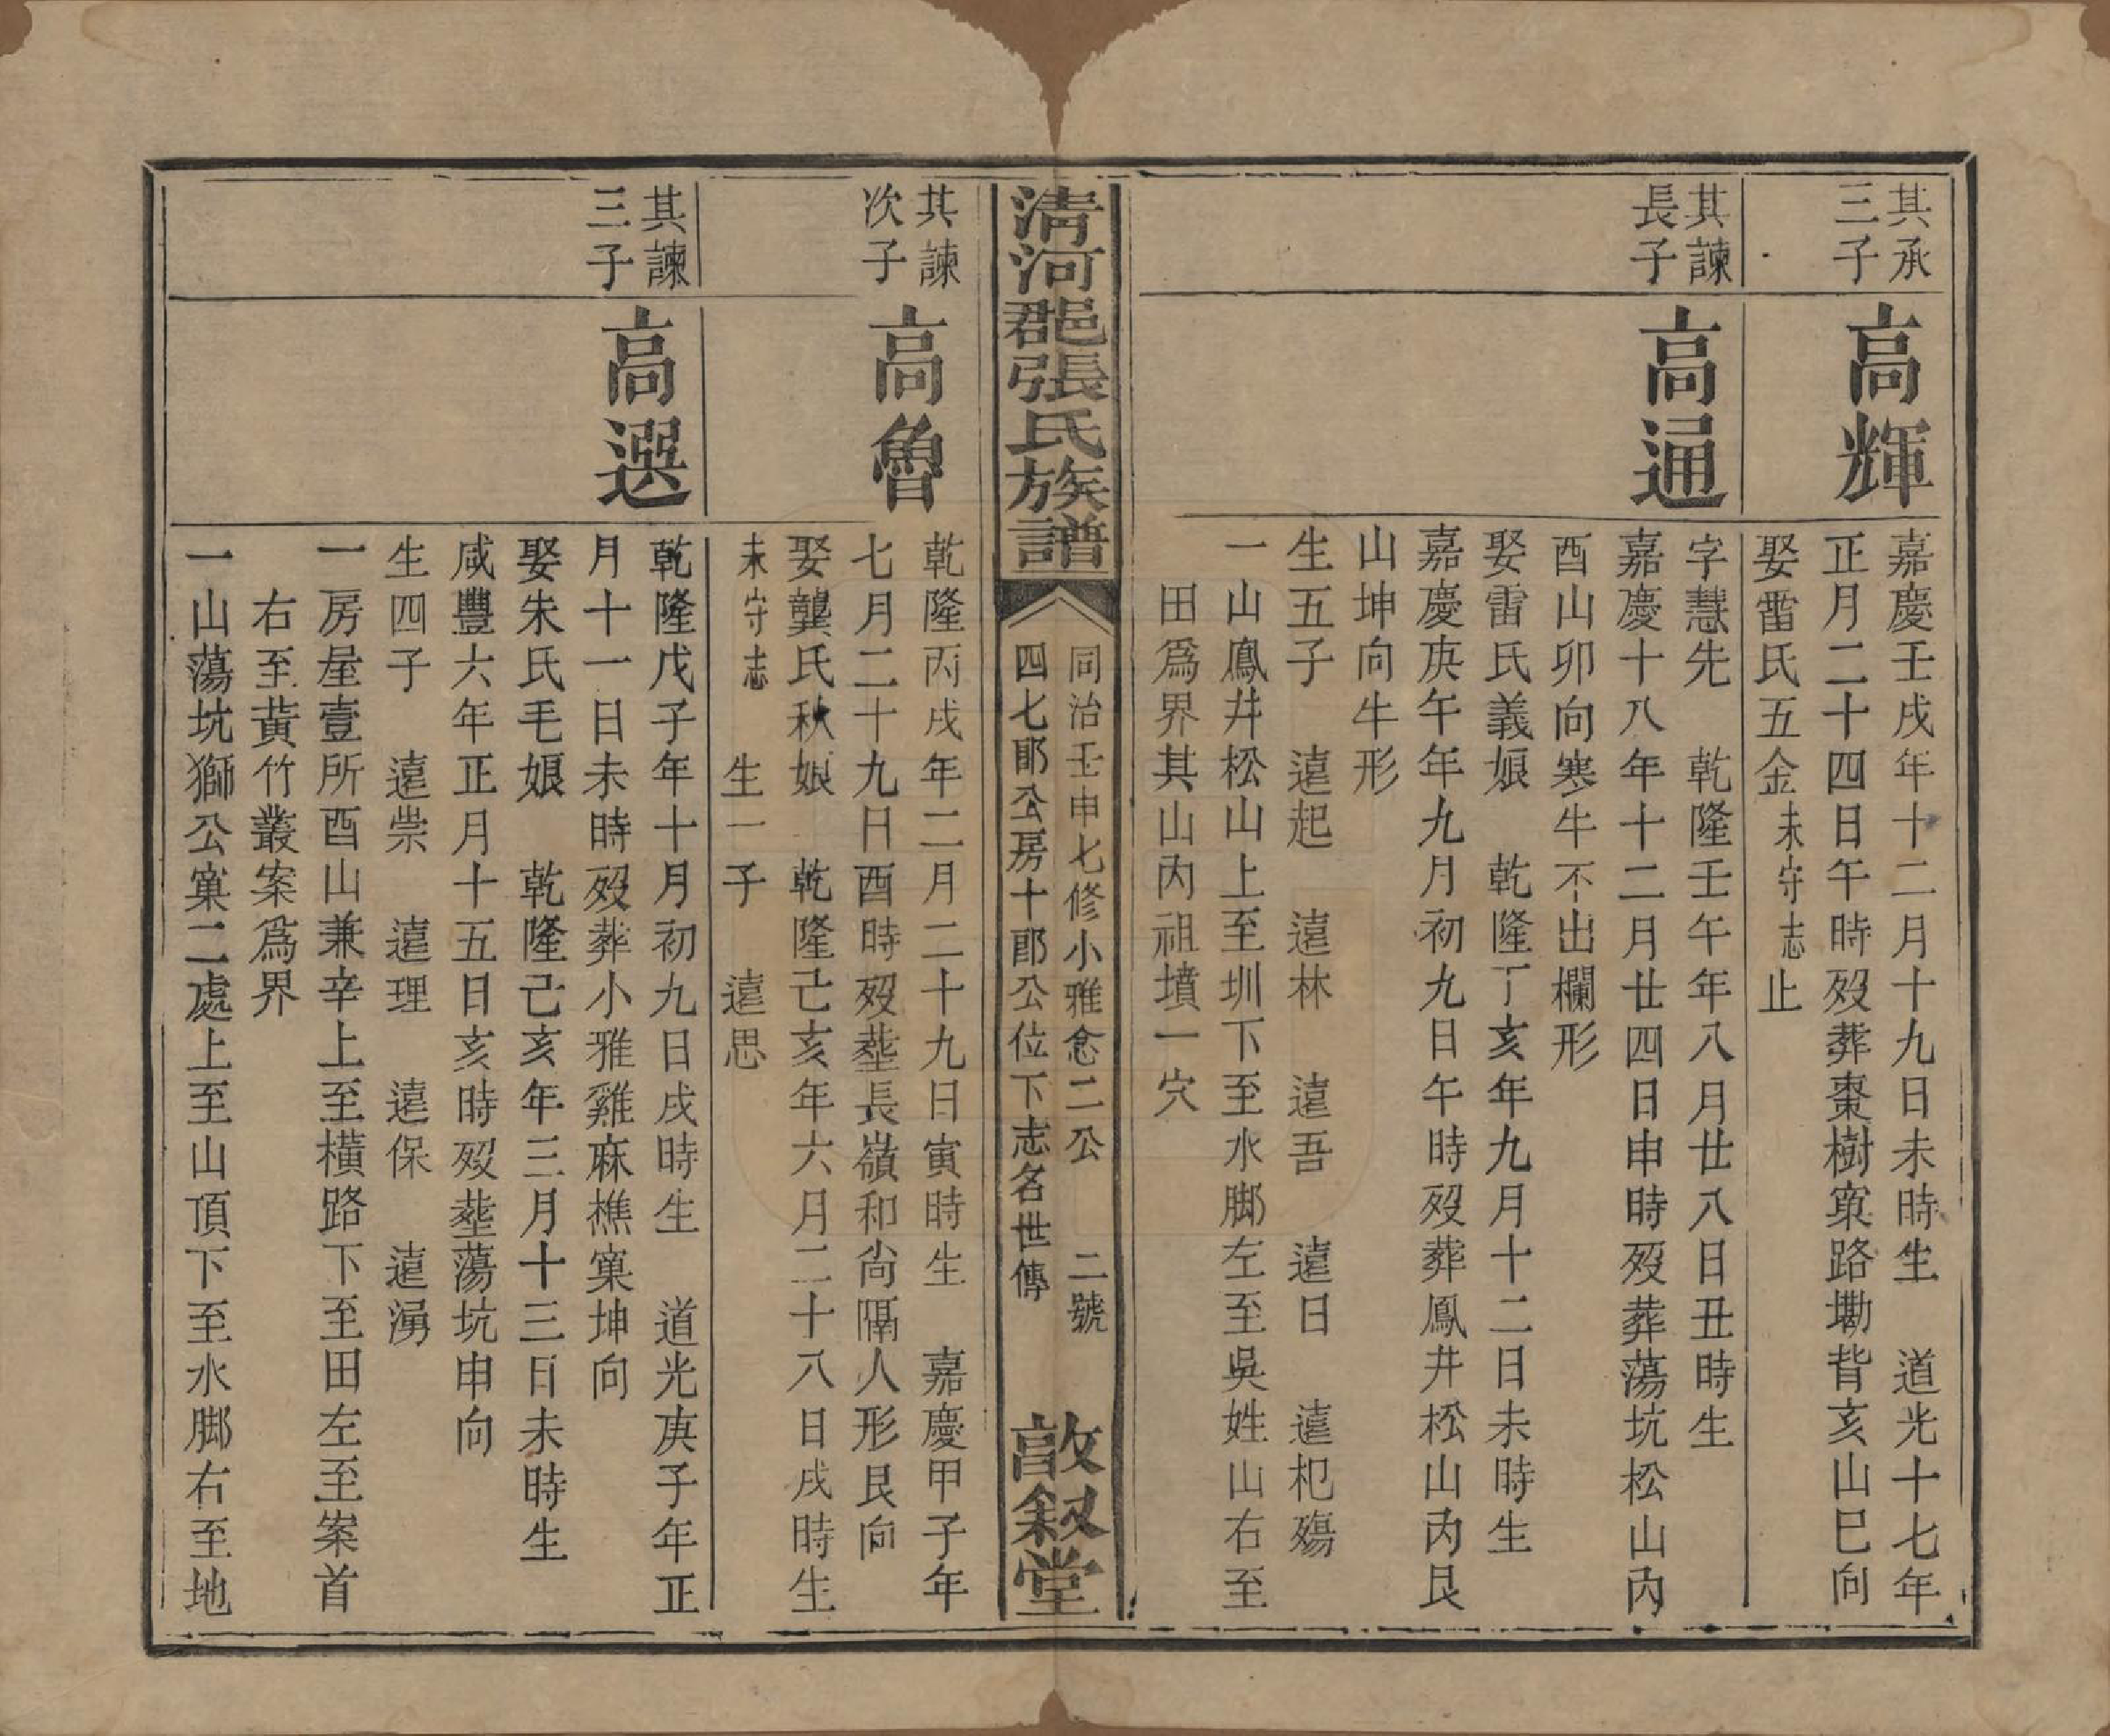 其承
三子
高輝
嘉慶壬戌年十二月十九日未時生　道光十七年
正月二十四日午時歿葬棗樹窠路墈背亥山巳向
娶雷氏五金未守志止
其諫
長子
高通
字慧先　乾隆壬午年八月廿八日丑時生
嘉慶十八年十二月廿四日申時歿葬蕩坑松山內
酉山卯向寒牛不出欄形
娶雷氏義娘　乾隆丁亥年九月十二日未時生
嘉慶庚午年九月初九日午時歿葬鳳井松山內艮
山坤向牛形
生五子　遠起　遠林　遠吾　遠日　遠杞殤
一山鳳井松山上至圳下至水脚左至吳姓山右至
田爲界其山內祖墳一穴
清河郡張氏族譜
同治壬申七修小雅念二公　二號
四七郎公房十郎公位下志名世傳
敦敘堂
其諫
次子
高魯
乾隆丙戌年二月二十九日寅時生　嘉慶甲子年
七月二十九日酉時歿塟長嶺和尙隔人形艮向
娶龔氏秋娘　乾隆己亥年六月二十八日戌時生
未守志　生一子　遠思
其諫
三子
高選
乾隆戊子年十月初九日戌時生　道光庚子年正
月十一日未時歿葬小雅雞麻樵窠坤向
娶朱氏毛娘　乾隆己亥年三月十三日未時生
咸豐六年正月十五日亥時歿塟蕩坑申向
生四子　遠崇　遠理　遠保　遠湧
一房屋壹所酉山兼辛上至橫路下至田左至案首
右至黃竹叢案爲界
一山蕩坑獅公窠二處上至山頂下至水脚右至地